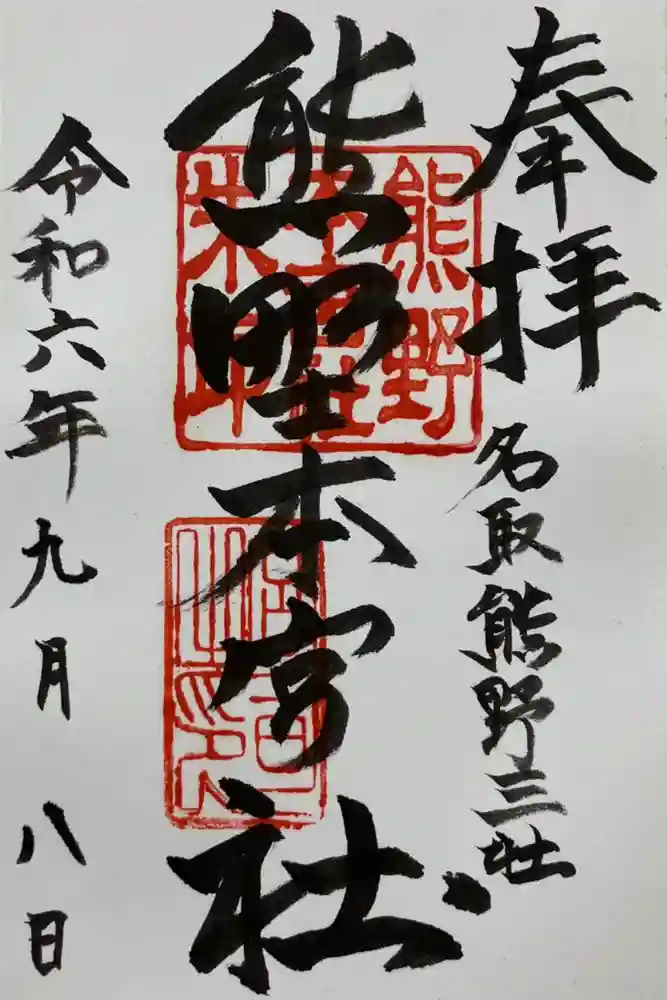 奉拝
名取熊野三社
熊野本宮社
令和六年九月八日